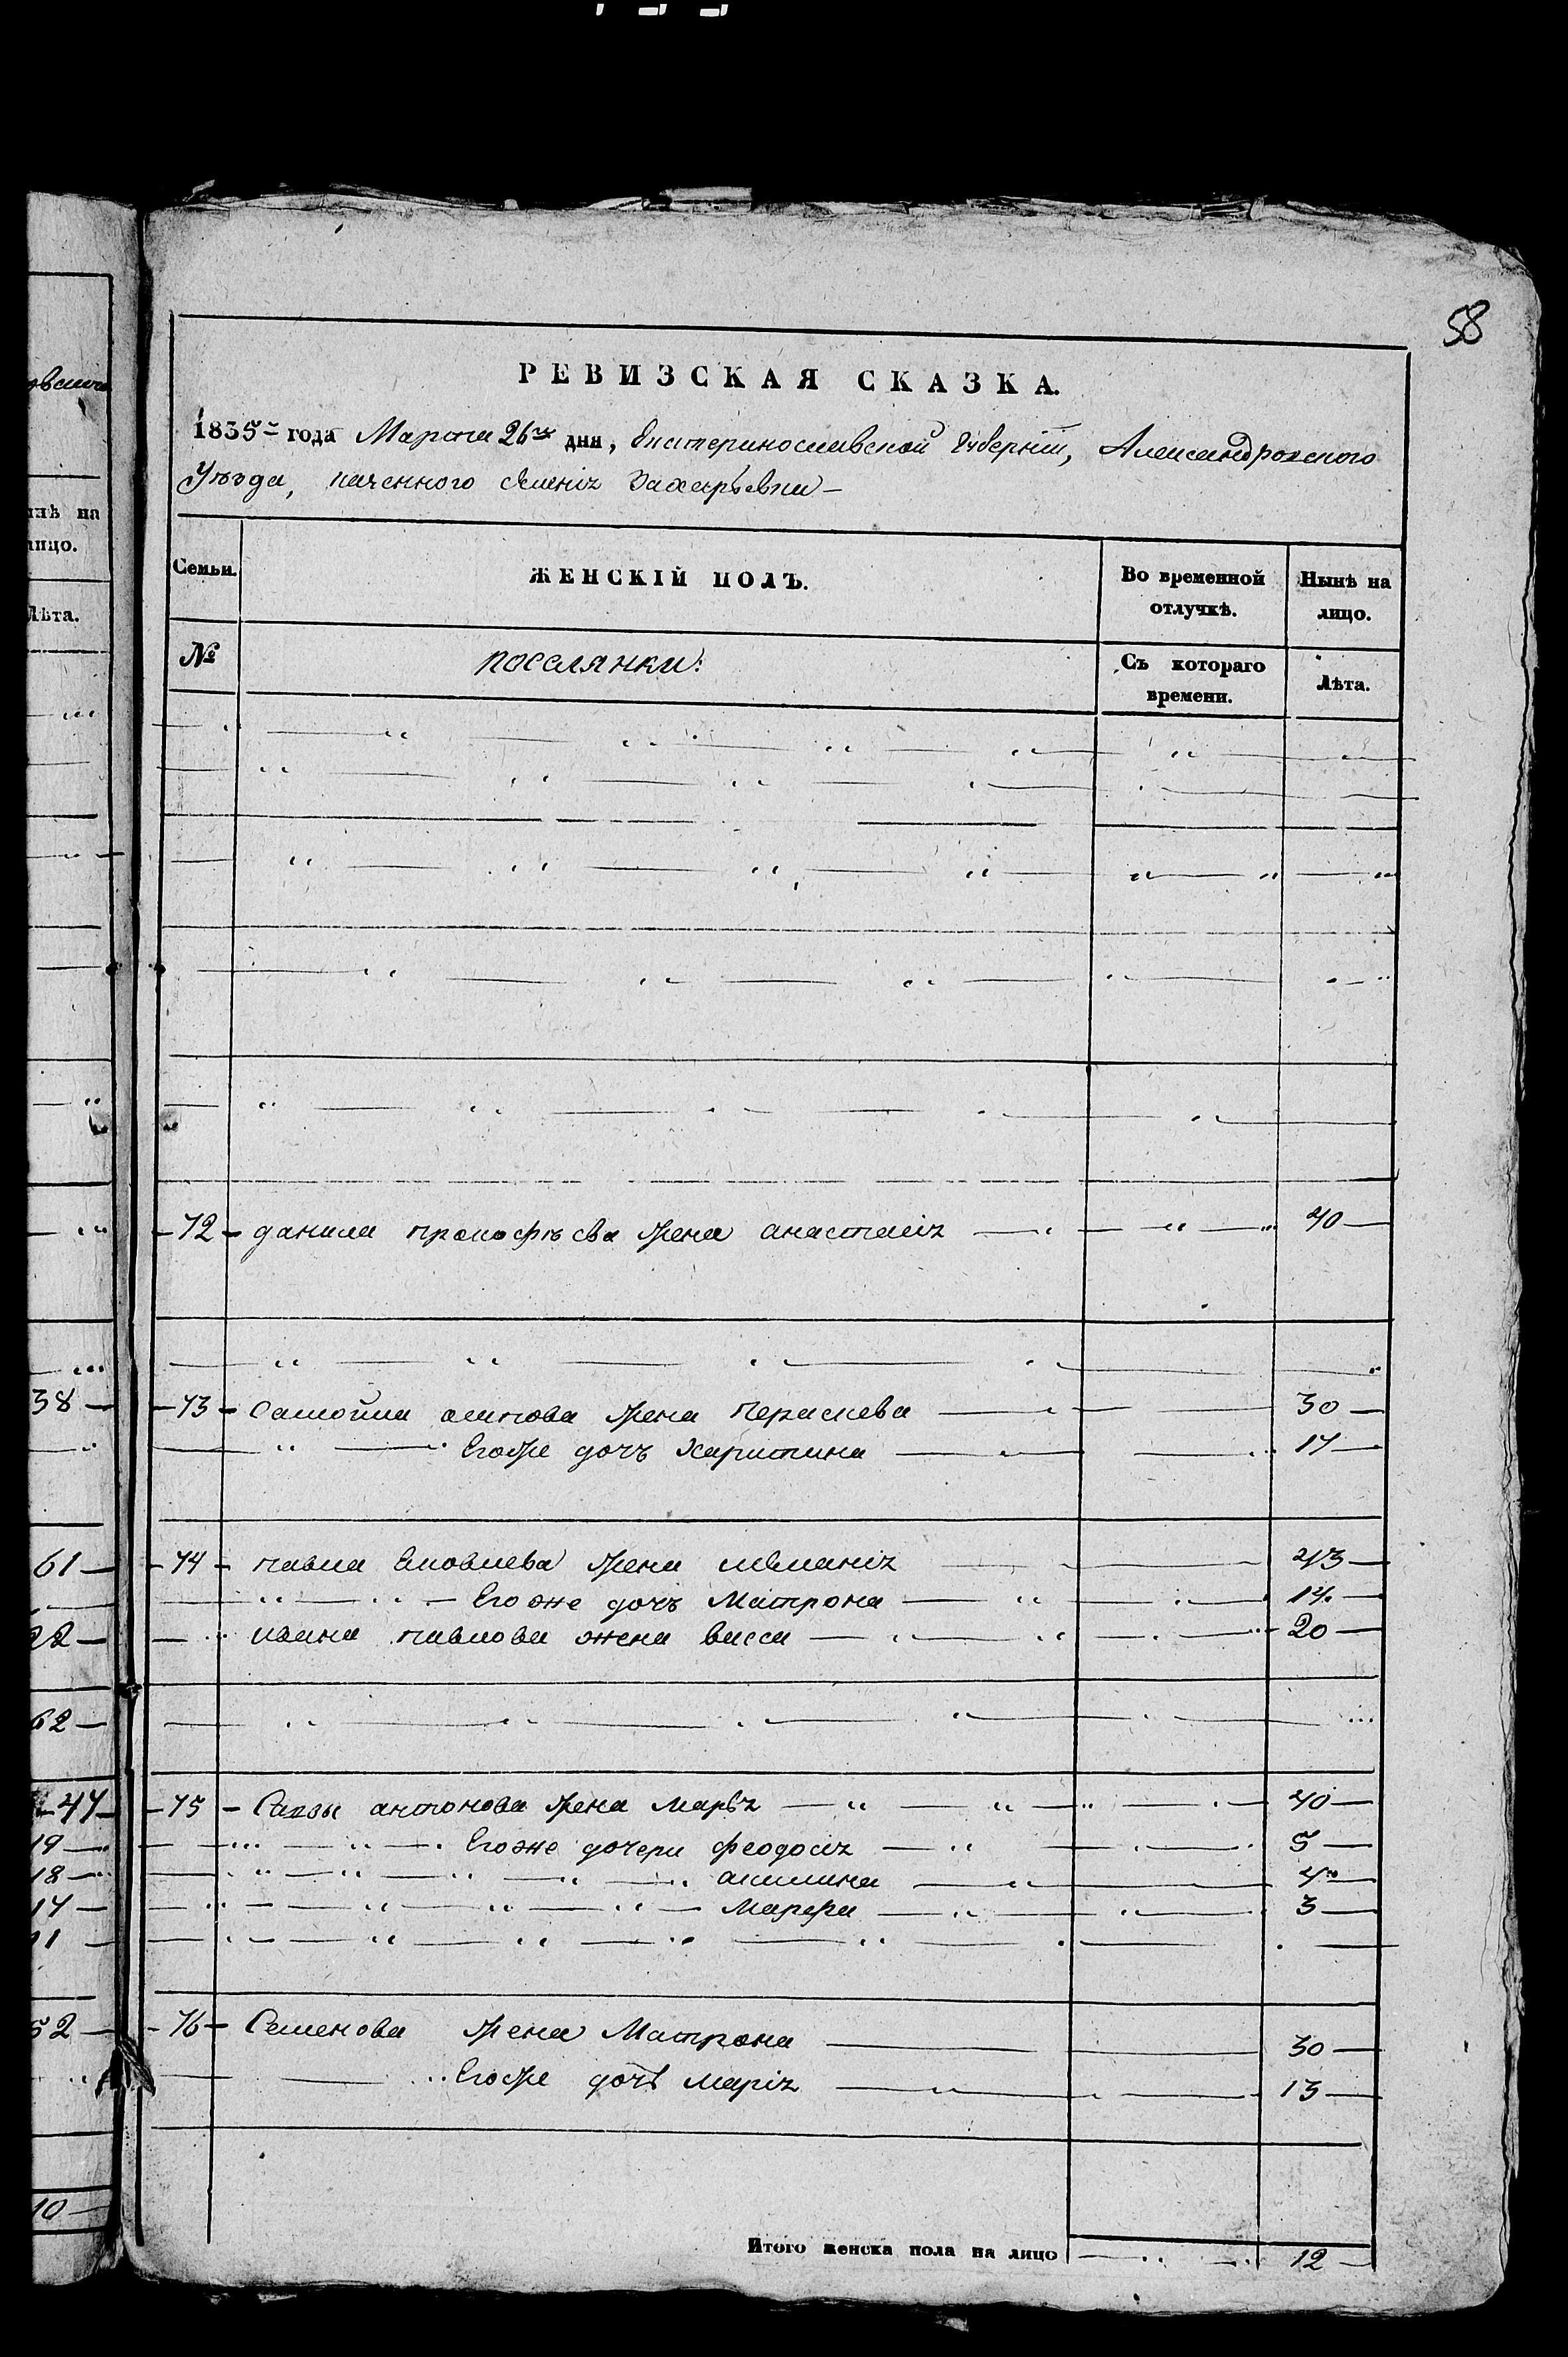 58
РЕВИЗСКАЯ СКАЗКА.
1835го года Марта 26го дня, Екатеринославской Губерніи, Александровского
Уѣзда, казенного селенія Захарьевки
Семьи.
ЖЕНСКІЙ ПОЛЪ.
Во временной отлучкѣ.
Нынѣ на лицо.
№
поселянки:
Съ котораго времени.
Лѣта.
72 данила прокофѣева жена анастасія 40
73 Самойла осипова жена Параскева 30
Егоже дочъ Харитина 17
74 павла Яковлева жена меланія 43
Егоже дочъ Матрона 14
ивана павлова жена васса 20
75 Саввы антонова жена марья 40
Егоже дочери феодосія 5
акилина 4
Марфа 3
76 Семенова жена Матрона 30
Егоже дочь марія 13
Итого женска пола на лицо 12
нѣ на
лицо.
Лѣта.
38
61
22
62
47
19
18
17
11
52
10